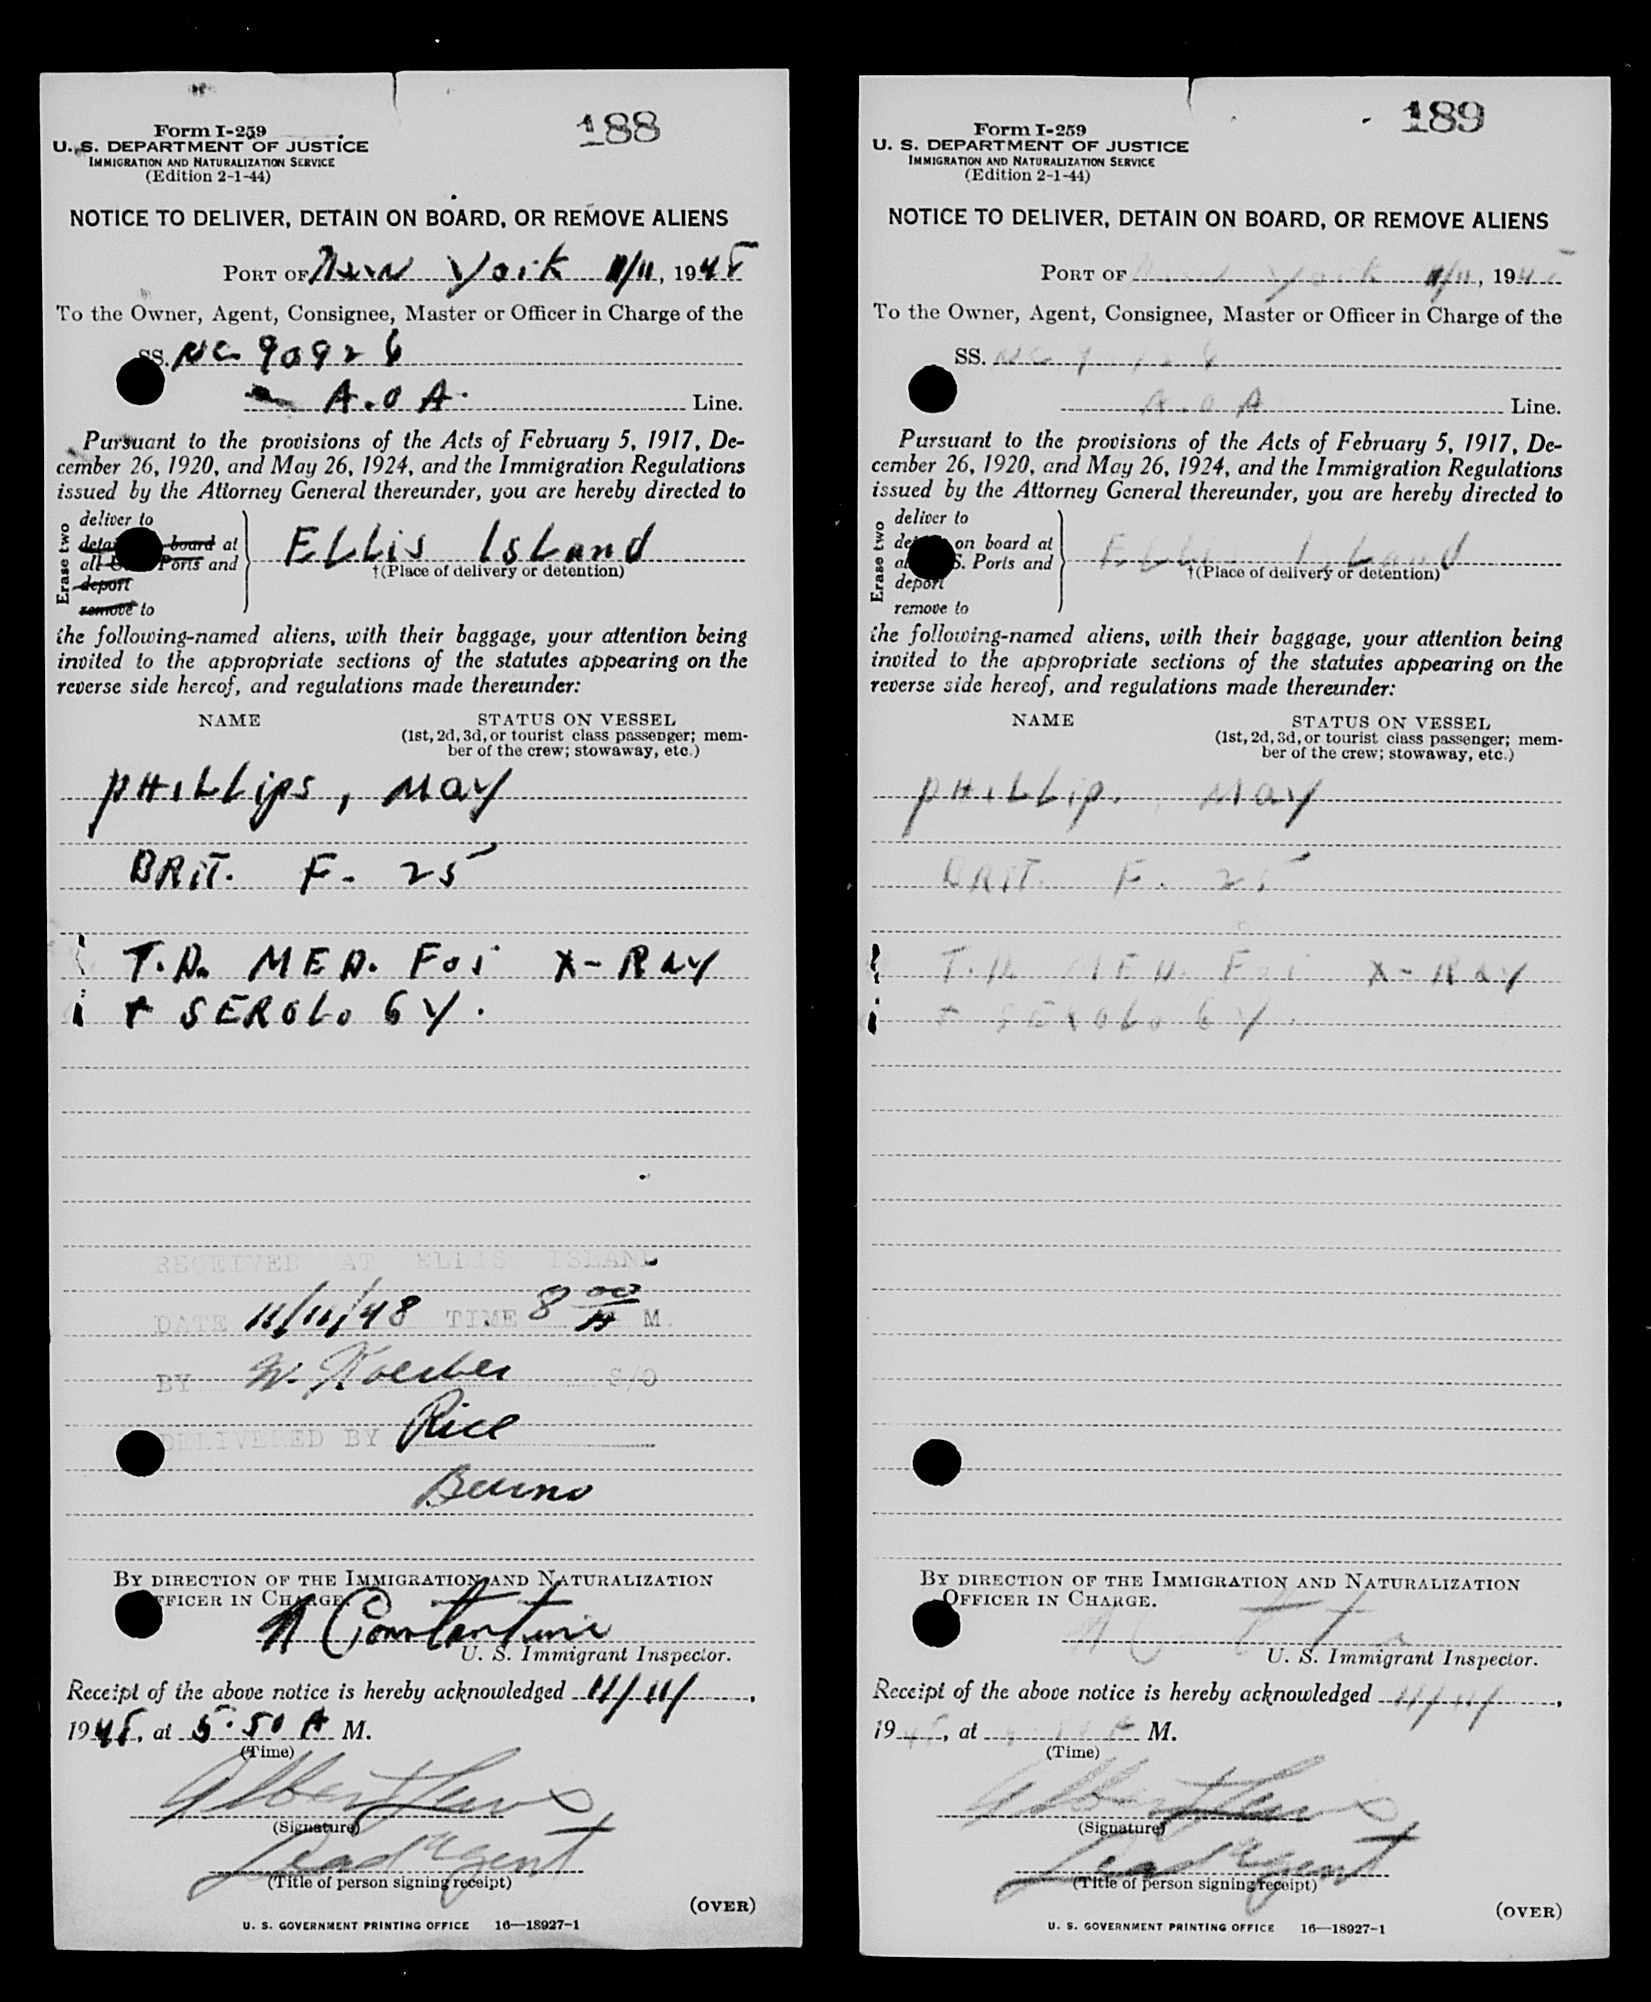 188
Form I-259
U. S. DEPARTMENT OF JUSTICE
IMMIGRATION AND NATURALIZATION SERVICE
(Edition 2-1-44)
NOTICE TO DELIVER, DETAIN ON BOARD, OR REMOVE ALIENS
PORT OF New York 11/11, 1948
To the Owner, Agent, Consignee, Master or Officer in Charge of the
SS. NC 90926
A.O A. Line.
Pursuant to the provisions of the Acts of February 5, 1917, De-
cember 26, 1920, and May 26, 1924, and the Immigration Regulations
issued by the Attorney General thereunder, you are hereby directed to
Erase two
deliver to
board at
all Ports and
deport
remove to
ELLis IsLand
†(Place of delivery or detention)
the following-named aliens, with their baggage, your attention being
invited to the appropriate sections of the statutes appearing on the
reverse side hereof, and regulations made thereunder:
NAME STATUS ON VESSEL
(1st, 2d, 3d, or tourist class passenger; mem-
ber of the crew; stowaway, etc.)
PHILLips, MAY
BRIT. F. 25
T.D. MED. For X-RAY
+ SEROLOGY.
RECEIVED AT ELLIS ISLAND
DATE 11/11/48 TIME 8 00 A M.
BY W. Koerber S/O
DELIVERED BY Rice
Bruno
BY DIRECTION OF THE IMMIGRATION AND NATURALIZATION
OFFICER IN CHARGE.
N Constantine
U. S. Immigrant Inspector.
Receipt of the above notice is hereby acknowledged 11/11/,
1948, at 5.50 A M.
(Time)
Albert Lewis
(Signature)
Lead Agent
(Title of person signing receipt)
(OVER)
U. S. GOVERNMENT PRINTING OFFICE 16—18927-1
189
Form I-259
U. S. DEPARTMENT OF JUSTICE
IMMIGRATION AND NATURALIZATION SERVICE
(Edition 2-1-44)
NOTICE TO DELIVER, DETAIN ON BOARD, OR REMOVE ALIENS
PORT OF New York 11/11, 194
To the Owner, Agent, Consignee, Master or Officer in Charge of the
SS. NC
A.O A Line.
Pursuant to the provisions of the Acts of February 5, 1917, De-
cember 26, 1920, and May 26, 1924, and the Immigration Regulations
issued by the Attorney General thereunder, you are hereby directed to
Erase two
deliver to
on board at
S. Ports and
deport
remove to
ELLis IsLand
†(Place of delivery or detention)
the following-named aliens, with their baggage, your attention being
invited to the appropriate sections of the statutes appearing on the
reverse side hereof, and regulations made thereunder:
NAME STATUS ON VESSEL
(1st, 2d, 3d, or tourist class passenger; mem-
ber of the crew; stowaway, etc.)
PHILLips, MAY
BRIT. F. 25
T.D. MED. For X-RAY
+ SEROLOGY.
BY DIRECTION OF THE IMMIGRATION AND NATURALIZATION
OFFICER IN CHARGE.
U. S. Immigrant Inspector.
Receipt of the above notice is hereby acknowledged 11/11/,
1948, at M.
(Time)
Albert Lewis
(Signature)
Lead Agent
(Title of person signing receipt)
(OVER)
U. S. GOVERNMENT PRINTING OFFICE 16—18927-1